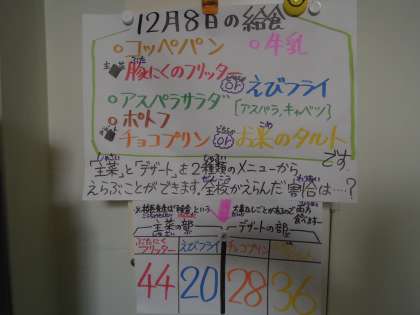 12月8日の給食
○コッペパン ○牛乳
主菜 豚にくのフリッター or えびフライ
○アスパラサラダ [アスパラ、キャベツ]
○ポトフ
チョコプリン or お米のタルト
です
「主菜」と「デザート」を2種類のメニューから
えらぶことができます。全校がえらんだ割合は…?
主菜の部 デザートの部
ぶたにくフリッター えびフライ チョコプリン
44 20 28 36